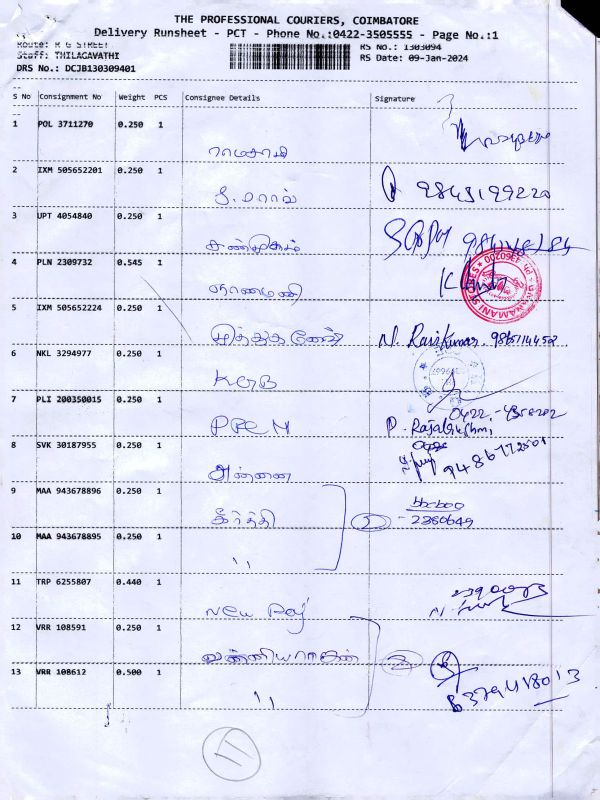 THE PROFESSIONAL COURIERS, COIMBATORE
Delivery Runsheet - PCT - Phone No.:0422-3505555 - Page No.:1
Route: R G STREET
RS No.: 1303094
Staff: THILAGAVATHI
RS Date: 09-Jan-2024
DRS No.: DCJB130309401
S No Consignment No Weight PCS Consignee Details Signature
1 POL 3711270 0.250 1
ராமசாமி
2 IXM 505652201 0.250 1
9843199220
3 UPT 4054840 0.250 1
சண்முகம்
4 PLN 2309732 0.545 1
ஞானமணி
5 IXM 505652224 0.250 1
N. Ravikumar. 9865114452
6 NKL 3294977 0.250 1
KGB
7 PLI 200350015 0.250 1
P. Rajalakshmi
8 SVK 30187955 0.250 1
அன்னை
9 MAA 943678896 0.250 1
கீர்த்தி 2 2380649
10 MAA 943678895 0.250 1
''
11 TRP 6255807 0.440 1
New Raj
12 VRR 108591 0.250 1
2
13 VRR 108612 0.500 1
''
11